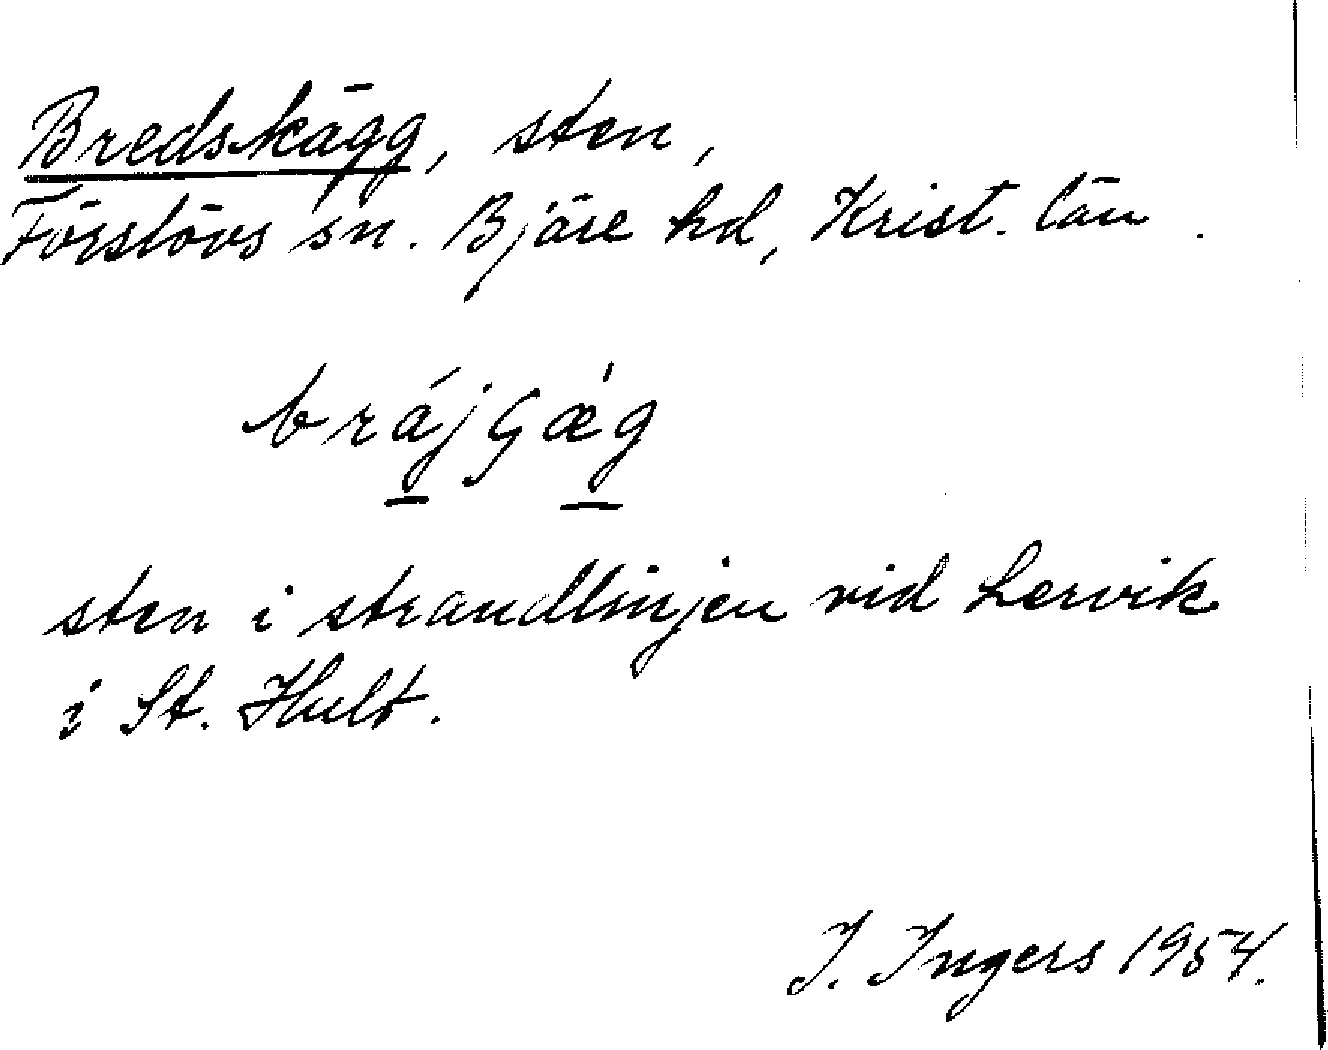 Bredskägg, sten,
Förslövs sn. Bjäre hd, Krist. län.
brájgǽg
sten i strandlinjen vid Lervik
i St. Hult.
I. Ingers 1954.